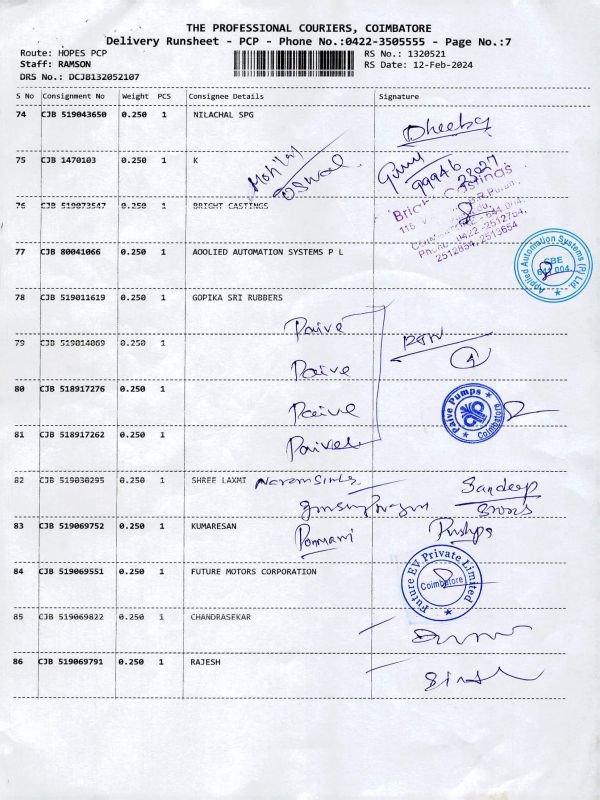 THE PROFESSIONAL COURIERS, COIMBATORE
Delivery Runsheet - PCP - Phone No.:0422-3505555 - Page No.:7
Route: HOPES PCP RS No.: 1320521
Staff: RAMSON RS Date: 12-Feb-2024
DRS No.: DCJB132052107
S No Consignment No Weight PCS Consignee Details Signature
74 CJB 519043650 0.250 1 NILACHAL SPG
Dheeba
75 CJB 1470103 0.250 1 K
Oswal
99946 22027
76 CJB 519073547 0.250 1 BRIGHT CASTINGS
Castings
2512654, 2513654
77 CJB 80041066 0.250 1 AOOLIED AUTOMATION SYSTEMS P L
Applied Automation Systems (P) Ltd.
CBE
641 004.
78 CJB 519011619 0.250 1 GOPIKA SRI RUBBERS
Paive
79 CJB 519014069 0.250 1
Paive
4
80 CJB 518917276 0.250 1
Paive
Paive Pumps
Coimbatore
81 CJB 518917262 0.250 1
Paive
82 CJB 519030295 0.250 1 SHREE LAXMI
Sandeep
83 CJB 519069752 0.250 1 KUMARESAN
Ponmani Pushpa
84 CJB 519069551 0.250 1 FUTURE MOTORS CORPORATION
Future EV Private Limited
Coimbatore
85 CJB 519069822 0.250 1 CHANDRASEKAR
86 CJB 519069791 0.250 1 RAJESH